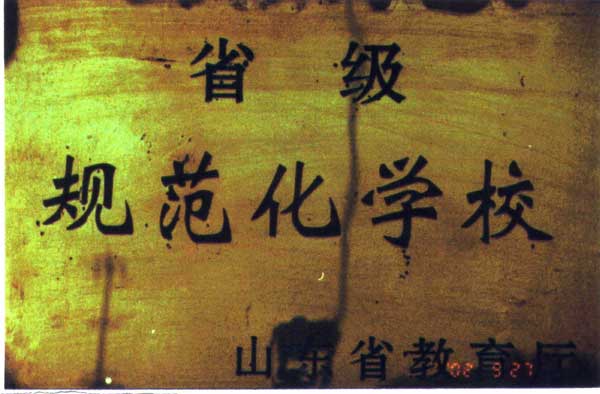 省级
规范化学校
山东省教育厅
'02 9 27